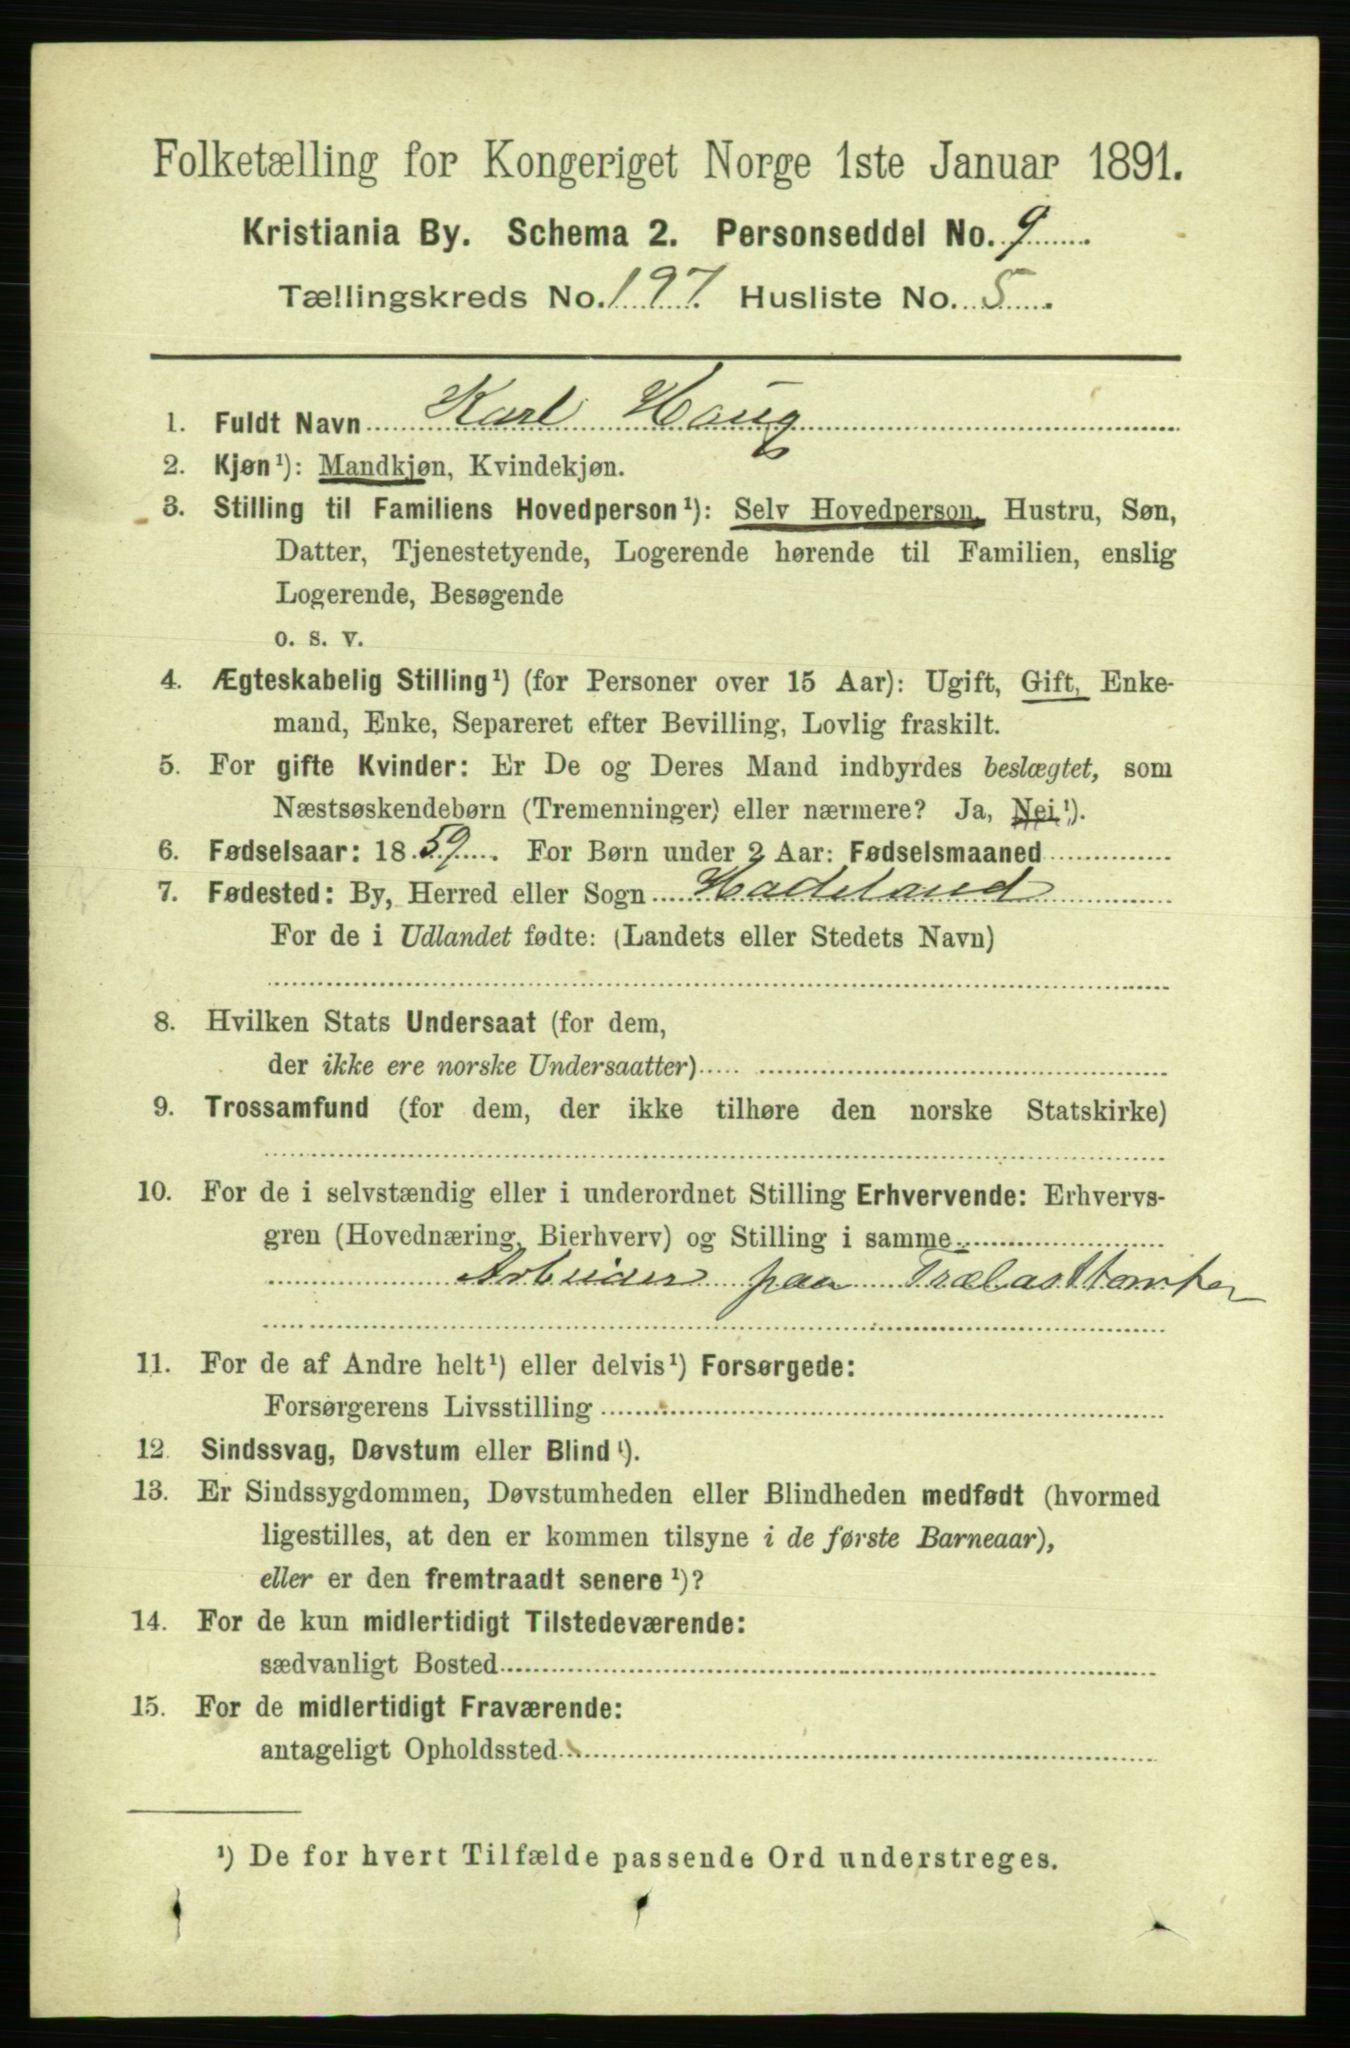 Folketælling for Kongeriget Norge 1ste Januar 1891.
Kristiania By. Schema 2. Personseddel No. 9
Tællingskreds No. 197. Husliste No. 5
1. Fuldt Navn Karl Haug
2. Kjøn¹): Mandkjøn, Kvindekjøn.
3. Stilling til Familiens Hovedperson¹): Selv Hovedperson, Hustru, Søn,
Datter, Tjenestetyende, Logerende hørende til Familien, enslig
Logerende, Besøgende
o. s. v.
4. Ægteskabelig Stilling¹) (for Personer over 15 Aar): Ugift, Gift, Enke-
mand, Enke, Separeret efter Bevilling, Lovlig fraskilt.
5. For gifte Kvinder: Er De og Deres Mand indbyrdes beslægtet, som
Næstsøskendebørn (Tremenninger) eller nærmere? Ja, Nei¹).
6. Fødselsaar: 1859. For Børn under 2 Aar: Fødselsmaaned
7. Fødested: By, Herred eller Sogn Hadeland
For de i Udlandet fødte: (Landets eller Stedets Navn)
8. Hvilken Stats Undersaat (for dem,
der ikke ere norske Undersaatter)
9. Trossamfund (for dem, der ikke tilhøre den norske Statskirke)
10. For de i selvstændig eller i underordnet Stilling Erhvervende: Erhvervs-
gren (Hovednæring, Bierhverv) og Stilling i samme
Arbeider paa Trælasttomter
11. For de af Andre helt¹) eller delvis¹) Forsørgede:
Forsørgerens Livsstilling
12. Sindssvag, Døvstum eller Blind¹).
13. Er Sindssygdommen, Døvstumheden eller Blindheden medfødt (hvormed
ligestilles, at den er kommen tilsyne i de første Barneaar),
eller er den fremtraadt senere¹)?
14. For de kun midlertidigt Tilstedeværende:
sædvanligt Bosted
15. For de midlertidigt Fraværende:
antageligt Opholdssted
¹) De for hvert Tilfælde passende Ord understreges.